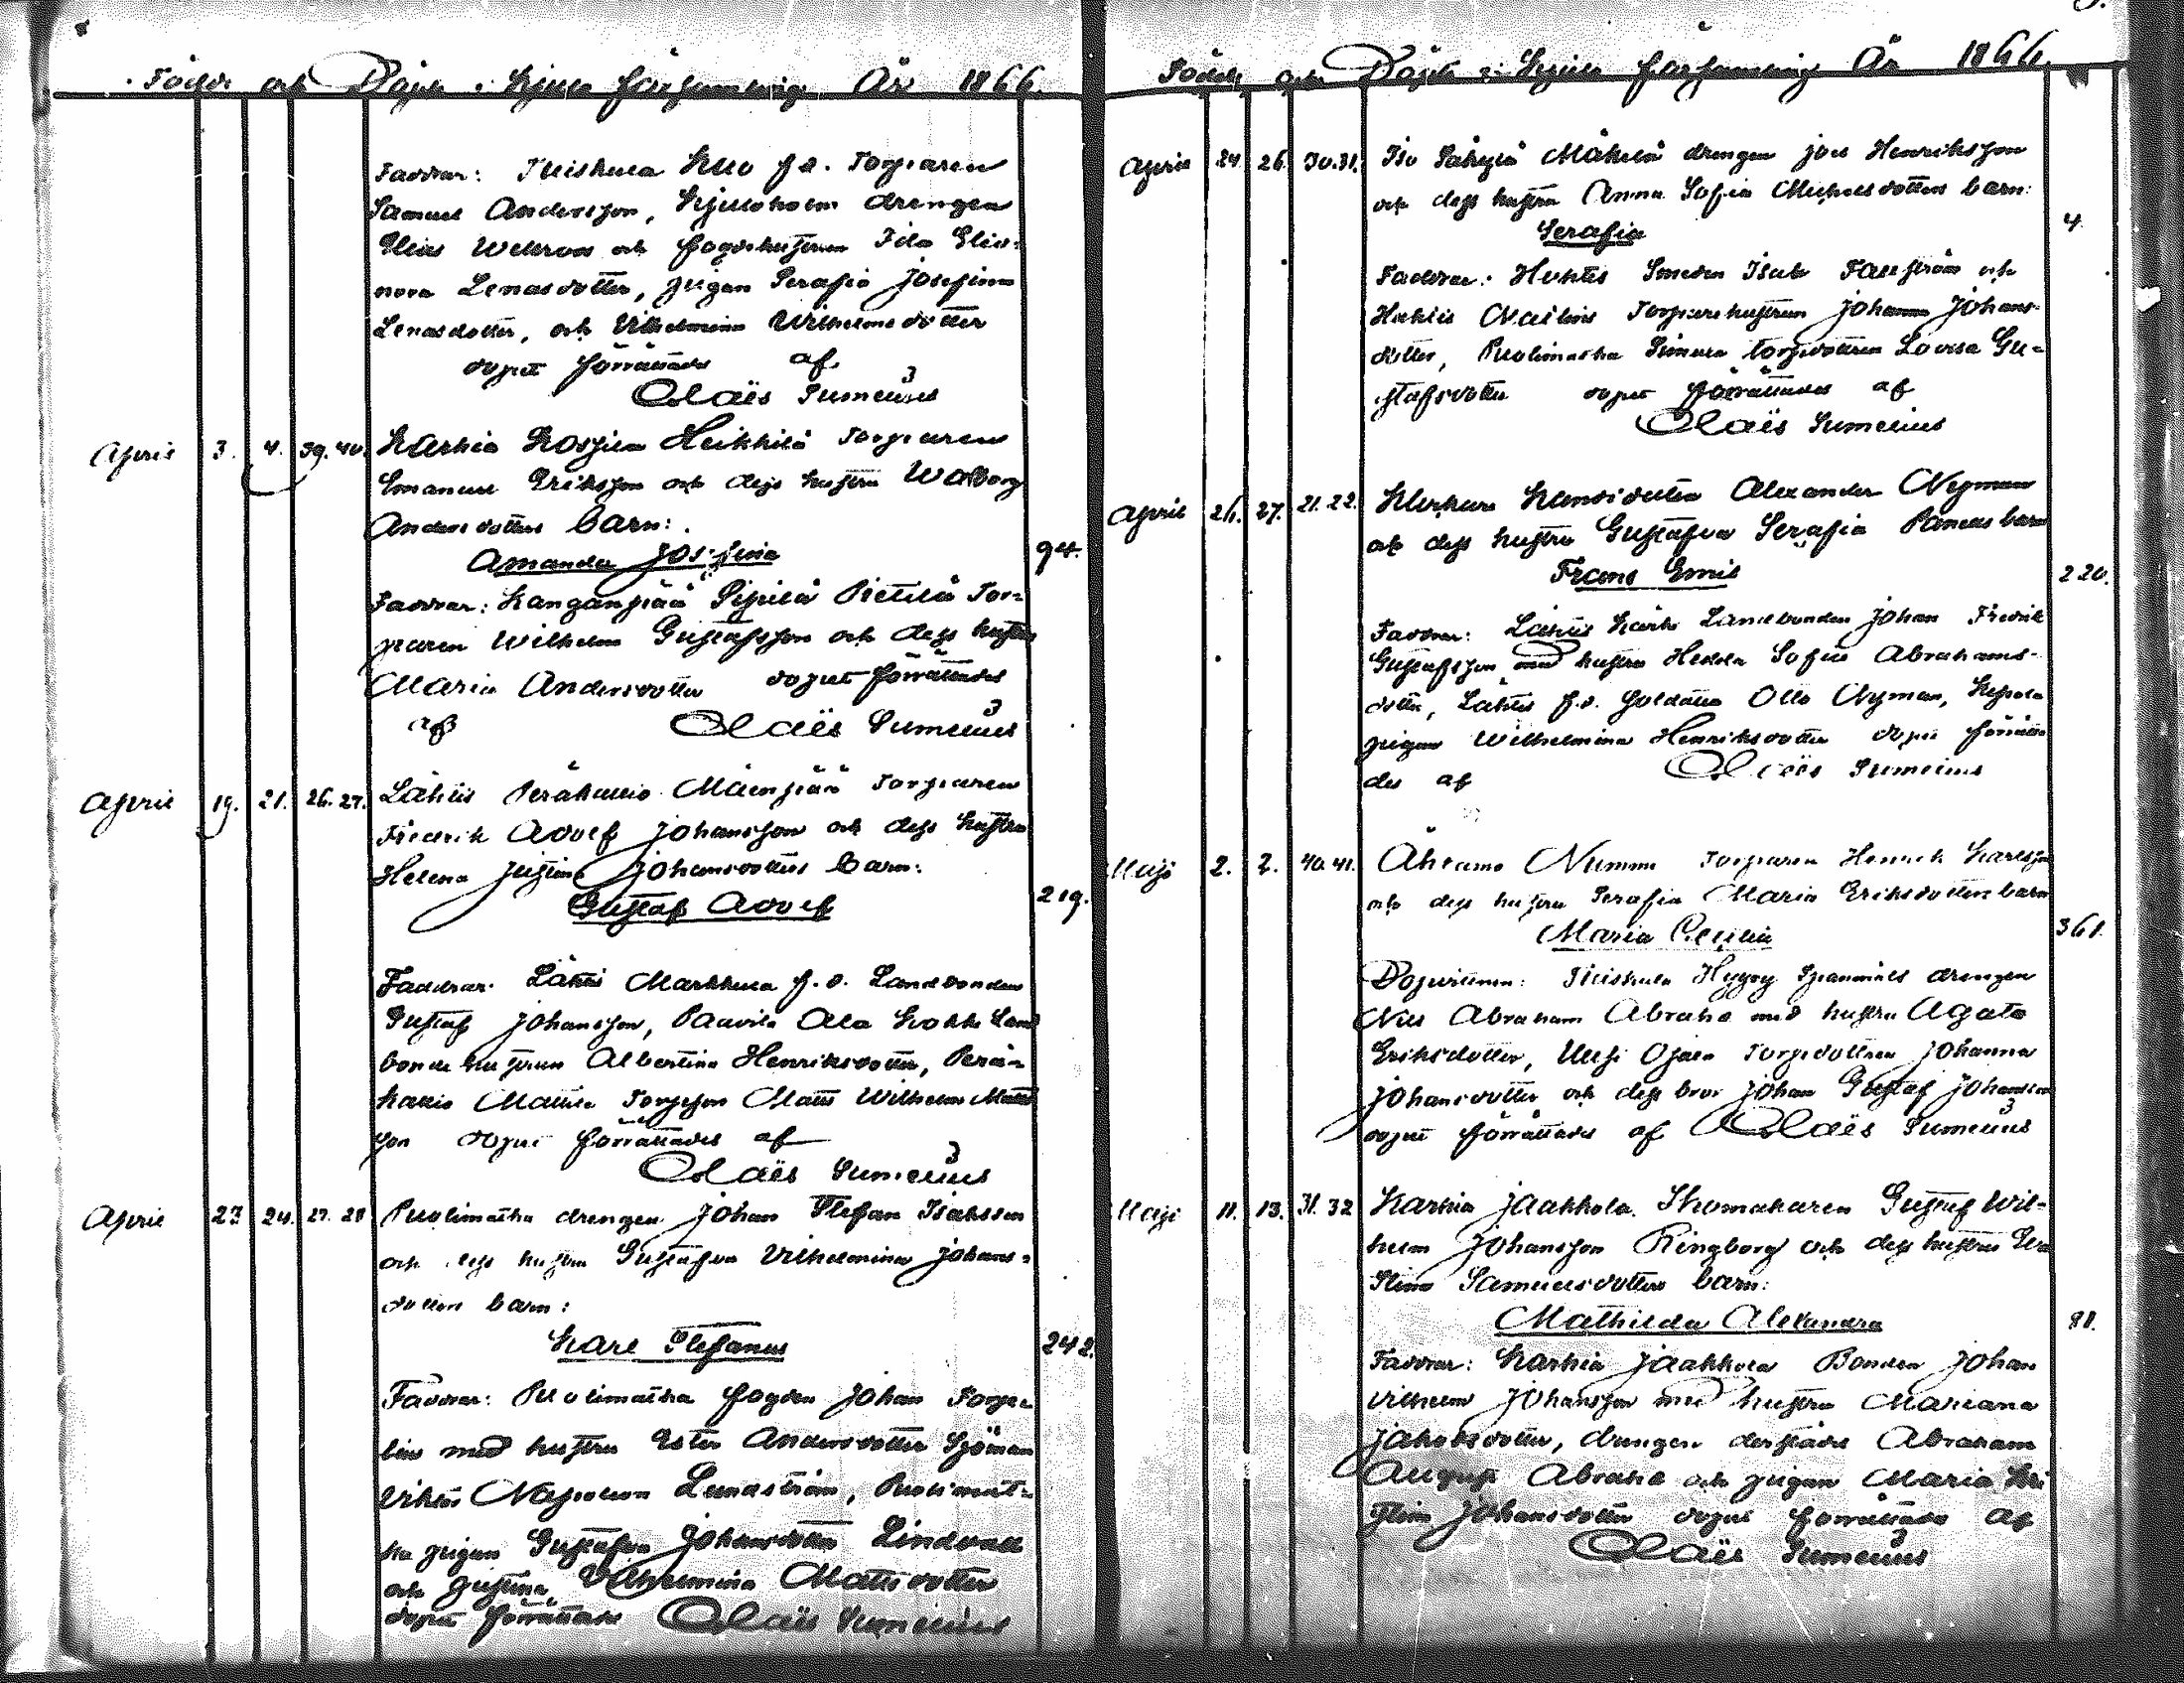 Födde och Döpte i Kjulo församling År 1866.
Faddrar: Kuiskula Kuo f.d. Torparen
Samuel Andersson, Kjuloholm drengen
Elias Wellroos och fogdehustrun Ida Elio-
nora Lenasdotter, pigan Serafia Josefina
Lenasdotter, och Vilhelmina Wilhelmsdotter
dopet förrättades af
Claës Sumelius
April 3. 4. 39. 40. Karhia Kospila Heikkilä Torparen
Emanuel Eriksson och dess hustru Walborg
Andersdotters barn:
Amanda Josefina
94.
Faddrar: Kanganpää Sipilä Pietilä Tor-
paren Wilhelm Gustafsson och dess hustru
Maria Andersdotter dopet förrättades
af Claës Sumelius
April 19. 21. 26. 27. Lähtis Peräkallio Mäenpää Torparen
Fredrik Adolf Johansson och dess hustru
Helena Justina Johansdotters barn:
Gustaf Adolf
219.
Faddrar: Lähtis Markkula f.d. Landbonden
Gustaf Johansson, Paavila Ala Krokki Land
bonde hustrun Albertina Henriksdotter, Perä-
kallio Mattila Torpeson Matts Wilhelm Matts
son dopet förrättades af
Claës Sumelius
April 23 24. 27. 28 Puolimatka drengen Johan Stefan Isaksson
och dess hustru Gustafva Vilhelmina Johans-
dotters barn:
Karl Stefanus
242.
Faddrar: Puolimatka fogden Johan Torpe-
lin med hustru Ester Andersdotter Sjöman
Viktor Napoleon Lundström, Puolimat-
ka pigan Gustafva Johansdotter Lindvall
och Justina Vilhelmina Mattsdotter
dopet förrättades Claës Sumelius
Födde och Döpte i Kjulo församling År 1866.
April 24. 26. 30. 31. Iso Säkylä Mäkelä drengen Joel Henriksson
och dess hustru Anna Sofia Michelsdotters barn:
Serafia
4.
Faddrar: Huhtis Smeden Isak Fallström och
Huhtis Torparehustrun Johanna Johans-
dotter, Puolimatka Simula torpdottren Lovisa Gu-
stafsdotter dopet förrättades af
Claës Sumelius
April 26. 27. 21. 22. Alexander Nyman
och dess hustru Gustafva Serafia barn
Frans Emil
220.
Faddrar: Lähtis Kärki Landbonden Johan Fredrik
Gustafsson med hustru Hedda Sofia Abrahams-
dotter, Lähtis f.d. Soldaten Otto Nyman,
pigan Wilhelmina Henriksdotter dopet förrätta
des af Claës Sumelius
Maji 2. 2. 40. 41. Ahtamo Nummi Torparen Henrik Karlsson
och dess hustru Serafia Maria Eriksdotters barn
Maria Cecilia
361.
Dopvittnen: Kuiskula Hyyry Spannmåls drengen
Nils Abraham Abraha med hustru Agata
Eriksdotter, Uusi Ojala Torpdottren Johanna
Johansdotter och dess bror Johan Gustaf Johansson
dopet förrättades af Claës Sumelius
Maji 11. 13. 31. 32 Karhia Jaakkola Skomakaren Gustaf Wil-
helm Johansson Ringborg och dess hustru Eva
Stina Samuelsdotters barn:
Mathilda Alexandra
81.
Faddrar: Karhia Jaakkola Bonden Johan
Vilhelm Johansson med hustru Mariana
Jakobsdotter, drengen derstädes Abraham
August Abraha och pigan Maria Kri
stina Johansdotter dopet förrättades af
Claës Sumelius